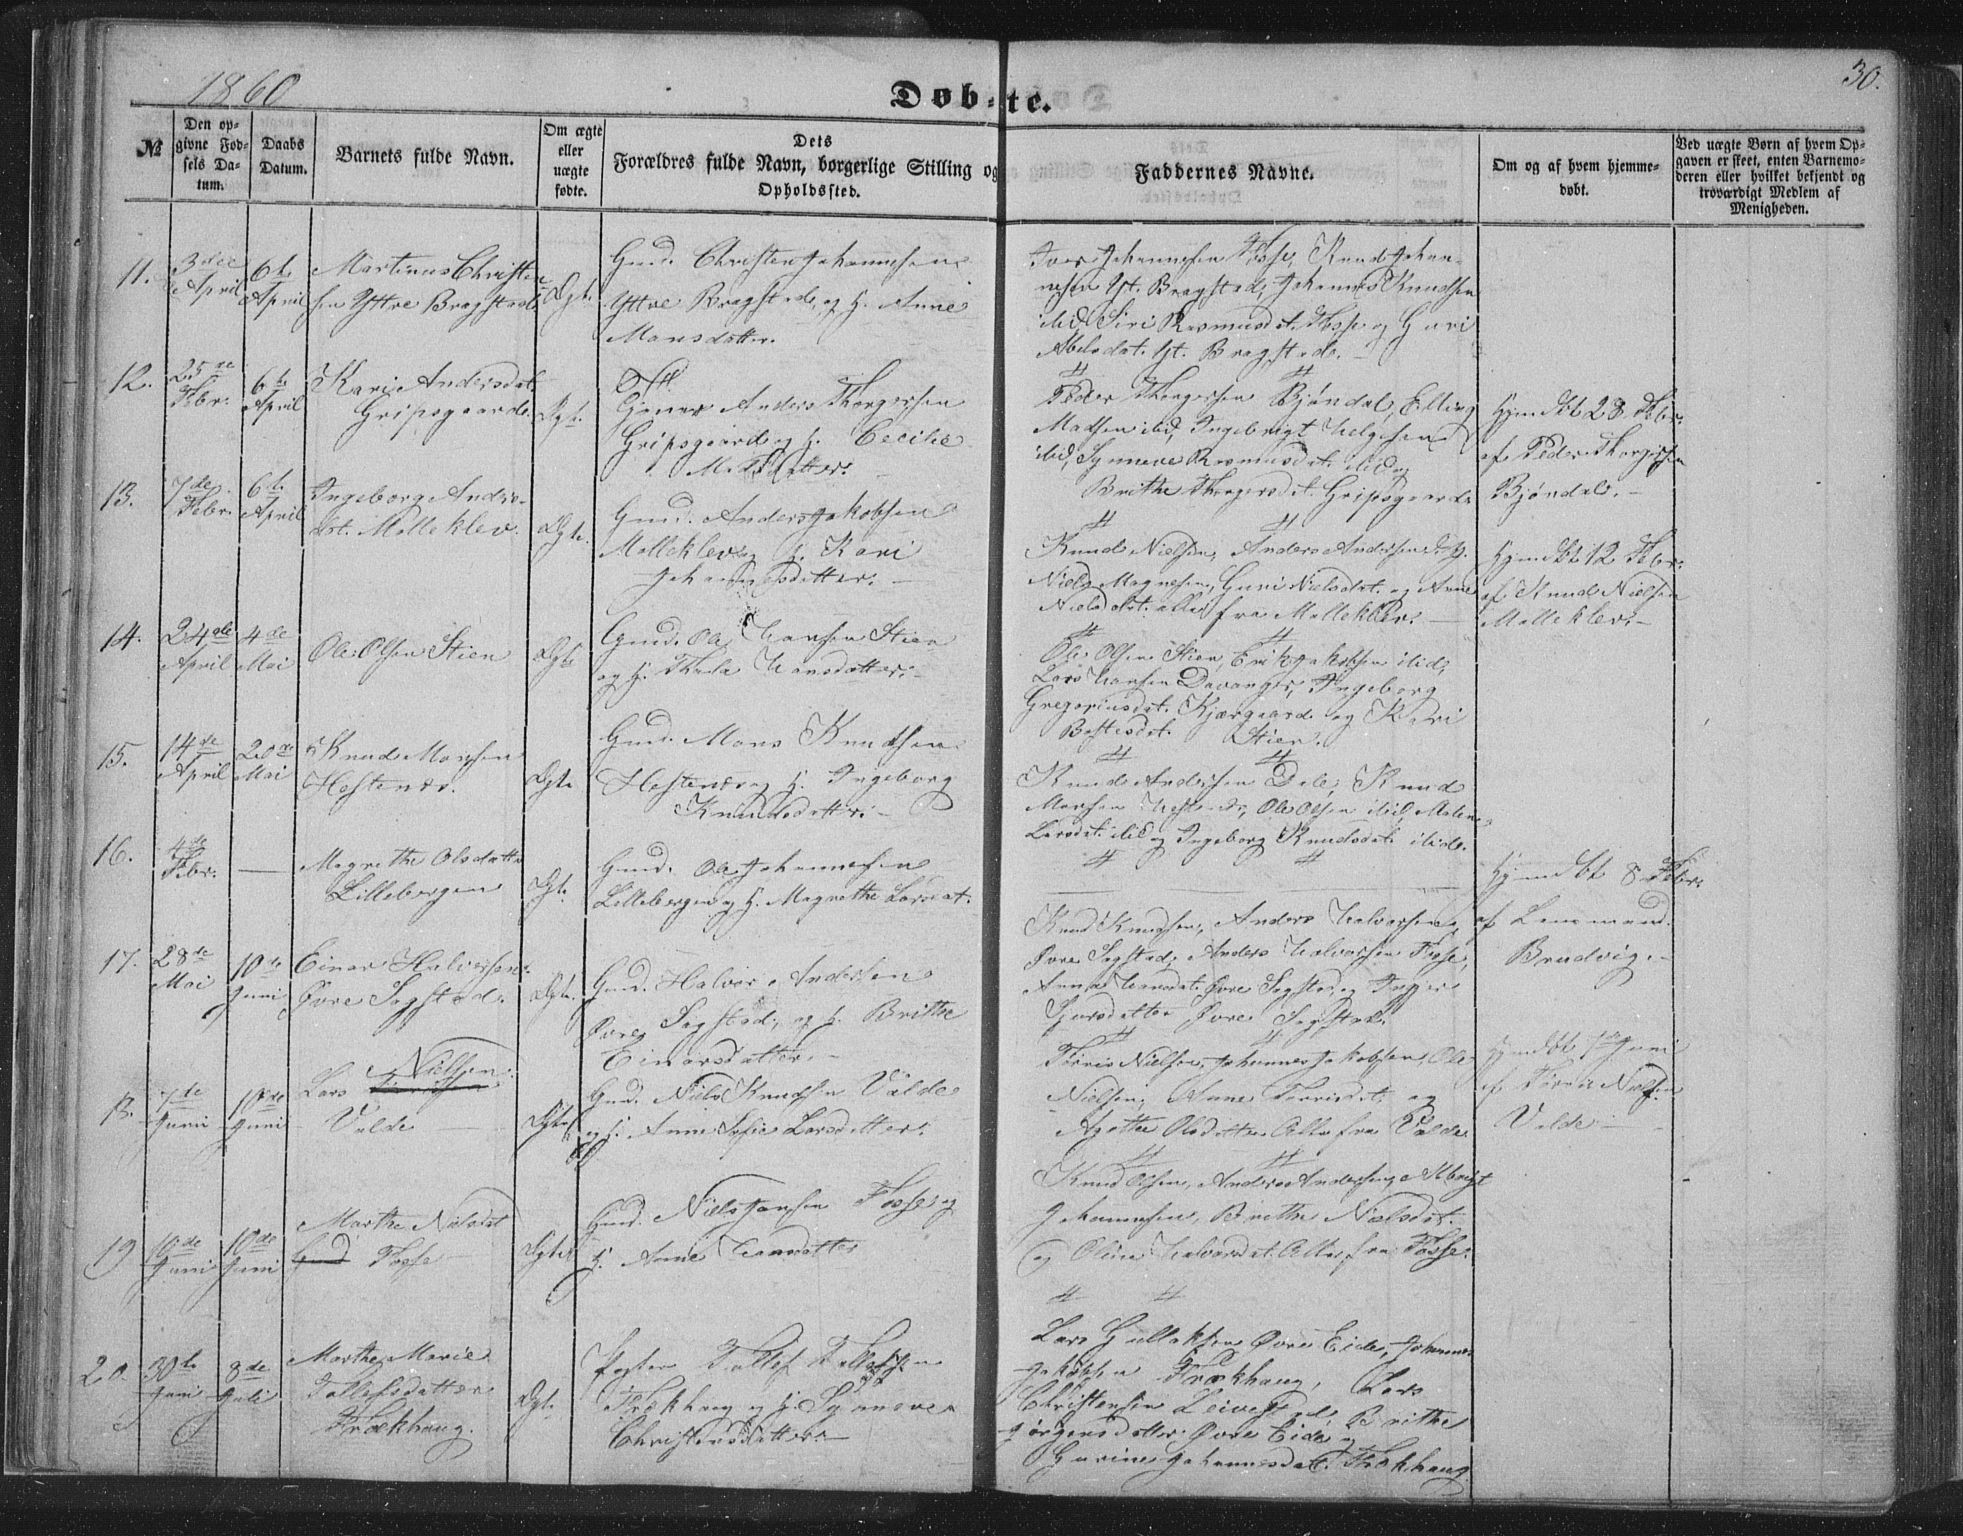 1860
Døb-te.
30.
№
Den op-
givne Fød-
sels Da-
tum.
Daabs
Datum.
Barnets fulde Navn.
Om ægte
eller
uægte
fødte.
Dets
Forældres fulde Navn, borgerlige Stilling og
Opholdssted.
Faddernes Navne.
Om og af hvem hjemme-
døbt.
Ved uægte Børn af hvem Op-
gaven er skeet, enten Barnemo-
deren eller hvilket bekjendt og
troværdigt Medlem af
Menigheden.
11.
3die
April
6te
April
Martinus Christen-
sen Yttre Bragstad
Ægte
Gmd. Christen Johannesen
Yttre Bragstad, og H. Anne
Monsdatter.
Iver Johannesen Fosse, Knud Johan-
nesen Yt. Bragstad, Johannes Knudsen
ibid, Siri Rasmusdt. Fosse og Guri
Abelsdat. Yt. Bragstad.
12.
25de
Febr.
6te
April
Kari Andersdat.
Gripsgaard.
Ægte
Anders Thorgersen
Gripsgaard og H. Cecilie
Peder Thorgersen Bjøndal, Elling
Madsen ibid, Ingebrigt Helgesen
ibid, Synneve Rasmusdat. ibid og
Brithe Thorgersdt. Gripsgaard
Hjemdøbt 28 Febr.
af Peder Thorgersen
Bjøndal.
13.
7de
Febr.
6te
April
Ingeborg Anders-
dat. Molleklev.
Ægte
Gmd. Anders Jakobsen
Molleklev og H. Kari
Johannesdatter.
Knud Nielsen, Anders Andersen
Niels Magnesen, Guri Nielsdat. og Anne
Nielsdat. alle fra Molleklev.
Hjemdøbt 12 Febr.
af Knud Nielsen
Molleklev.
14.
24de
April
4de
Mai
Ole Olsen Stien
Ægte
Gmd. Ole Hansen Stien
og H. Hansdatter.
Ole Olsen Stien, Erik Jakobsen ibid,
Lars Hansen Davanger, Ingeborg
Gregoriusdat. Kjærgaard og Kari
Stien.
15.
14de
April
20de
Mai
Knud Monsen
Hestenes.
Ægte
Gmd. Mons Knudsen
Hestenes og H. Ingeborg
Knudsdatter.
Knud Andersen Dale, Knud
Monsen Hestenes, Ole Olsen ibid, Malene
Larsdat. ibid og Ingeborg Knudsdat. ibid.
16.
4de
Febr.
Magnethe Olsdatter
Lillebergen
Ægte
Gmd. Ole Johannesen
Lillebergen og H. Magnethe Larsdat.
Hjemdøbt 8 Febr.
af Lensmand
Brudvig.
17.
28de
Mai
10de
Juni
Einar Halvorsen
Øvre Sagstad.
Ægte
Gmd. Halvor Andersen
Øvre Sagstad, og H. Brithe
Einarsdatter.
Knud Knudsen, Anders Halvorsen
Øvre Sagstad, Anders Halvorsen Fosse,
Anna Hansdat. Øvre Sagstad og Inger
Sjursdatter Øvre Sagstad.
18.
7de
Juni
10de
Juni
Lars Nielsen
Valde
Ægte
Gmd. Niels Knudsen Valde
og H. Anne Sofie Larsdatter.
Tørris Nielsen, Johannes Jakobsen, Ole
Nielsen, Anne Tørrisdat. og
Agathe Olsdatter Alle fra Valde
Hjemdøbt Juni
af Tørris Nielsen
Valde
19
10de
Juni
10de
Juni
Marthe Nielsdat
Gmd Fosse
Ægte
Gmd. Niels Hansen Fosse og
H. Anne Hansdatter
Knud Olsen, Anders Andersen, Albrigt
Johannesen, Brithe Nielsdat.
og Oline Halvorsdat. Alle fra Fosse.
20.
30te
Juni
8de
Juli
Marthe Marie
Tollefsdatter
Frækhaug.
Ægte
Tollef Tollefsen
Frækhaug og H. Synneve
Christensdatter
Lars Gullaksen Øvre Eide, Johannes
Jakobsen Frækhaug, Lars
Christensen Leivestad, Brithe
Jørgensdatter Øvre Eide og
Gurine Johannesdat. Frækhaug